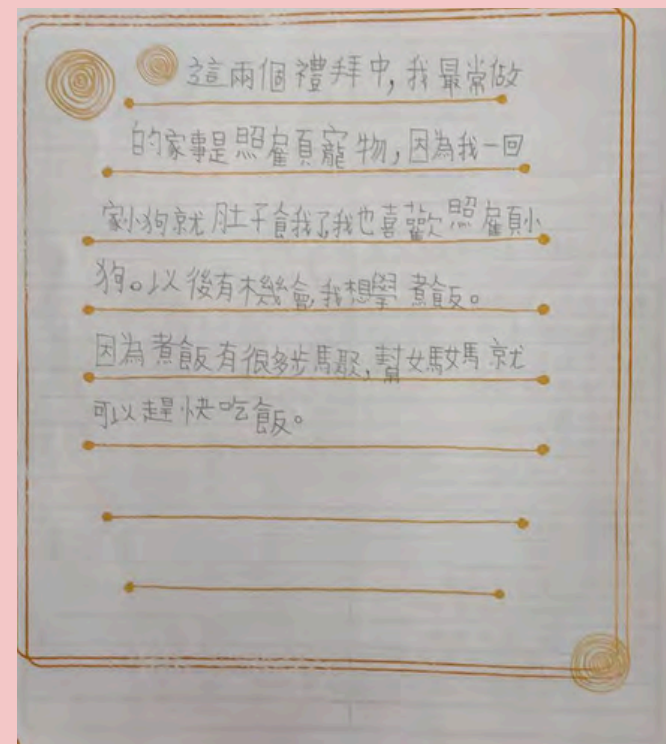 這兩個禮拜中,我最常做
的家事是照雇頁寵物,因為我一回
家小狗就肚子食我了我也喜歡照雇頁小
狗。以後有機會,我想學煮飯。
因為煮飯有很多步驟,幫媽媽就
可以趕快吃飯。